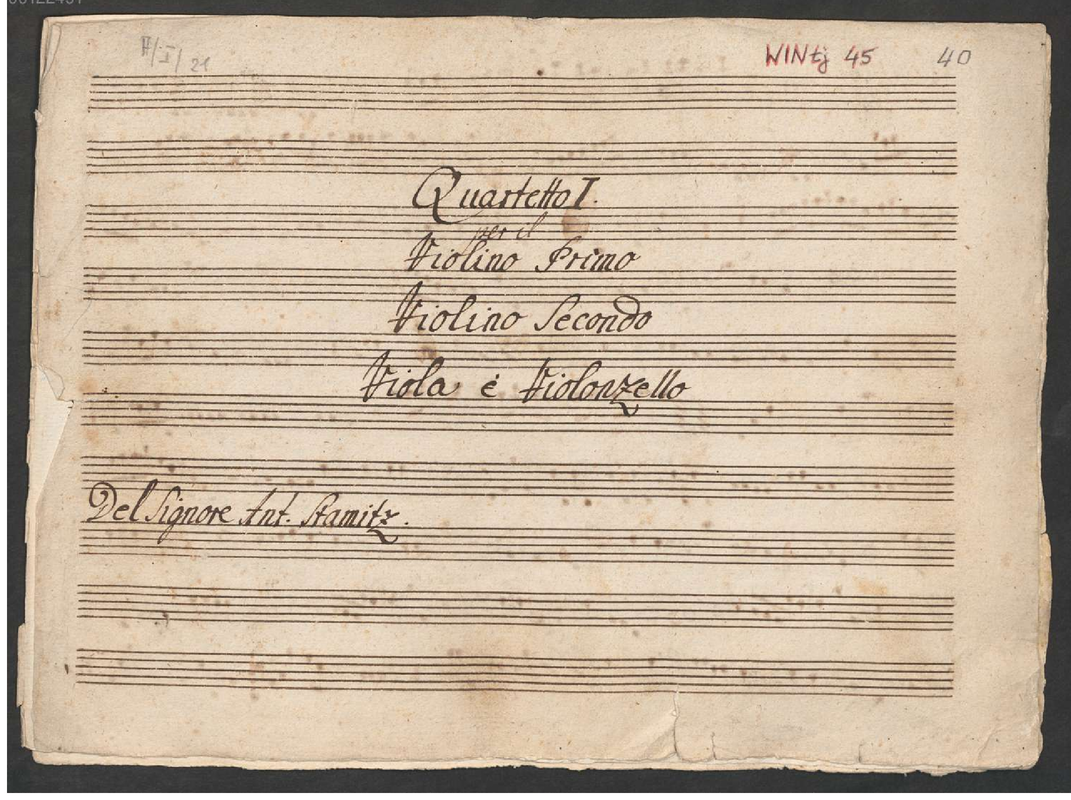 H/I/21
WINtj 45 40
Quartetto I.
per il
Violino Primo
Violino Secondo
Viola é Violonzello
Del Signore Ant. Stamitz.